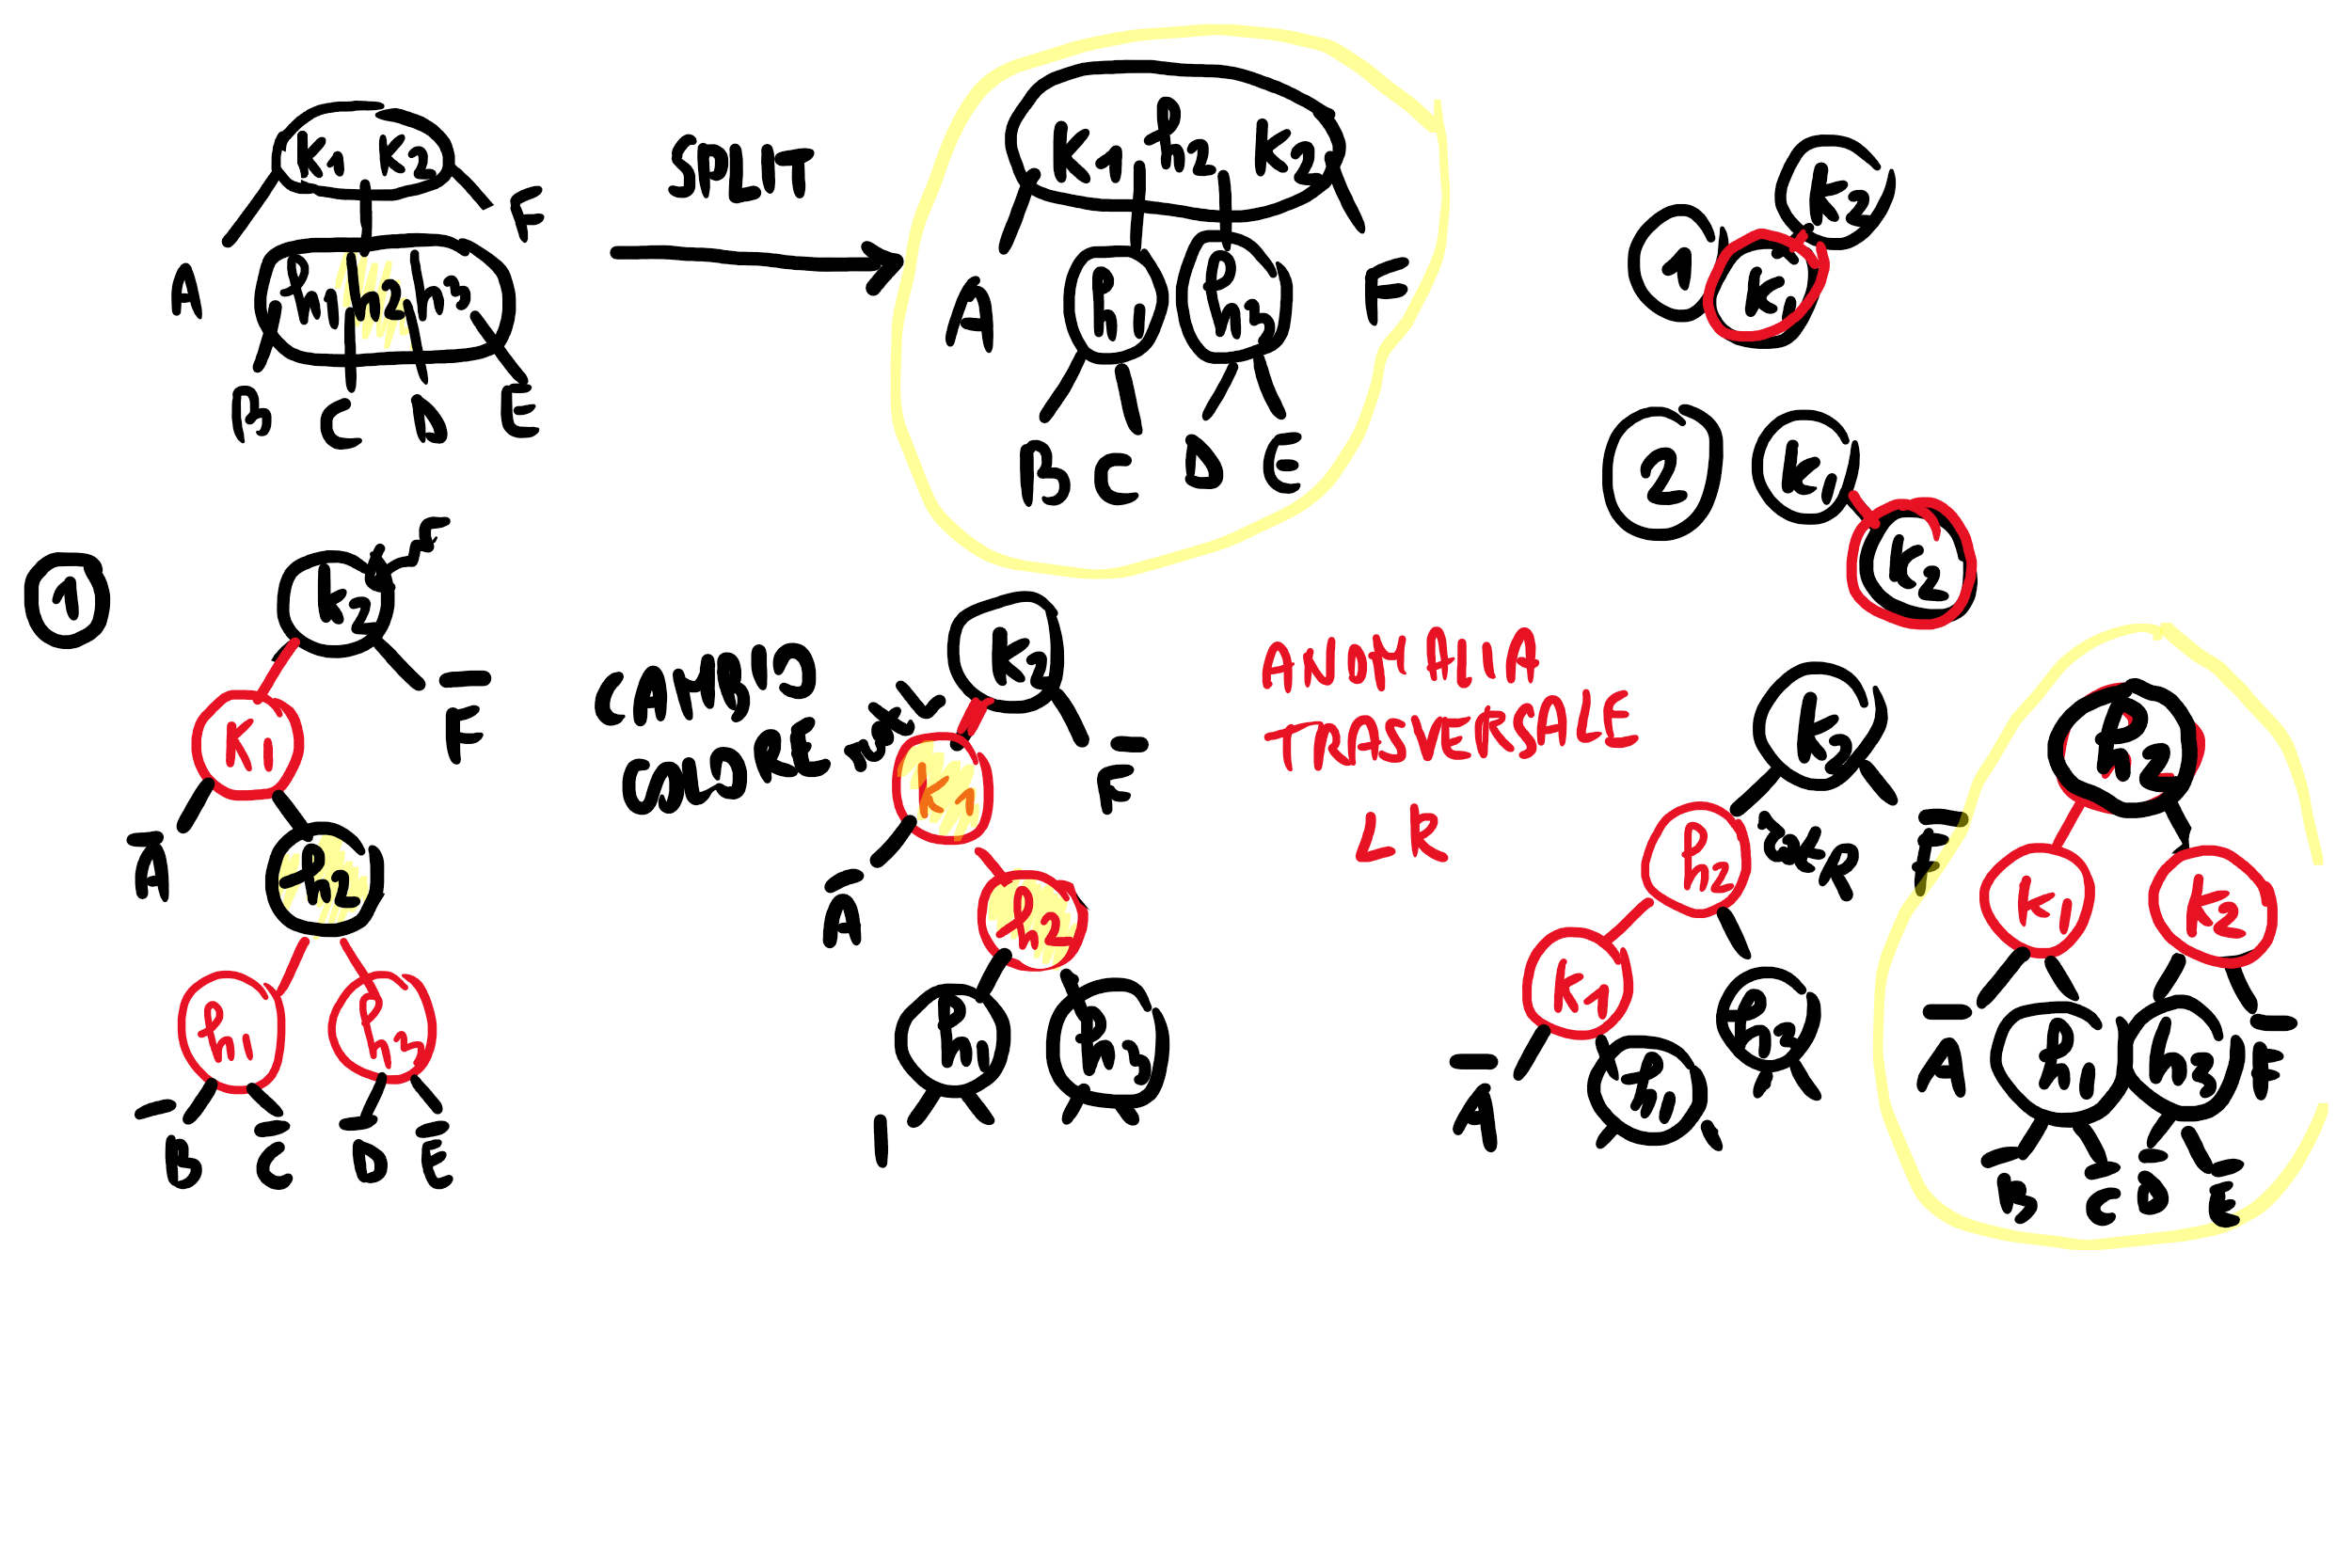 K1 K2
A
F
h1 h2 h3
B C D E
SPLIT
K1 h2 K2
A
h1 h3
F
B C D E
1
K2
K1
2
K1
K2
1
K2
F
K1
A
h2
h1 h3
B C D E
CAMBIO
COLORE
K2
K1
F
A
h2
h1 h3
ANOMALIA
TRASVERSALE
LR
K2
F
h2
K1
h3
A
h1
h2
K1 K2
A
h1 h3
F
B C D E